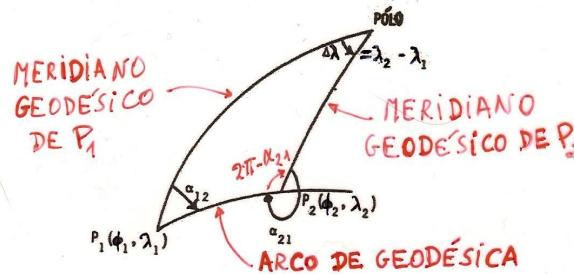 PÓLO
Δλ = λ₂ - λ₁
MERIDIANO
GEODÉSICO
DE P₁
MERIDIANO
GEODÉSICO DE P
2π-α₂₁
α₁₂
P₂(ϕ₂, λ₂)
P₁(ϕ₁, λ₁)
α₂₁
ARCO DE GEODÉSICA